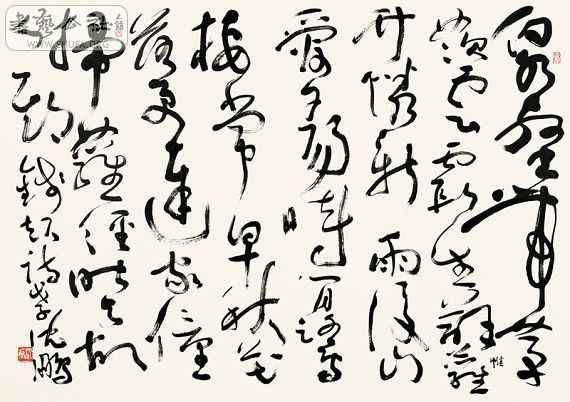 泉壑帶茅
茨雲霞生薜蘿
帷
竹憐新雨後山
愛夕陽時閒鷺
棲常早秋花
落更遲家僮
掃蘿徑昨與故
人期錢起詩沈鵬
書藝公社
WWW.SHUFA.ORG